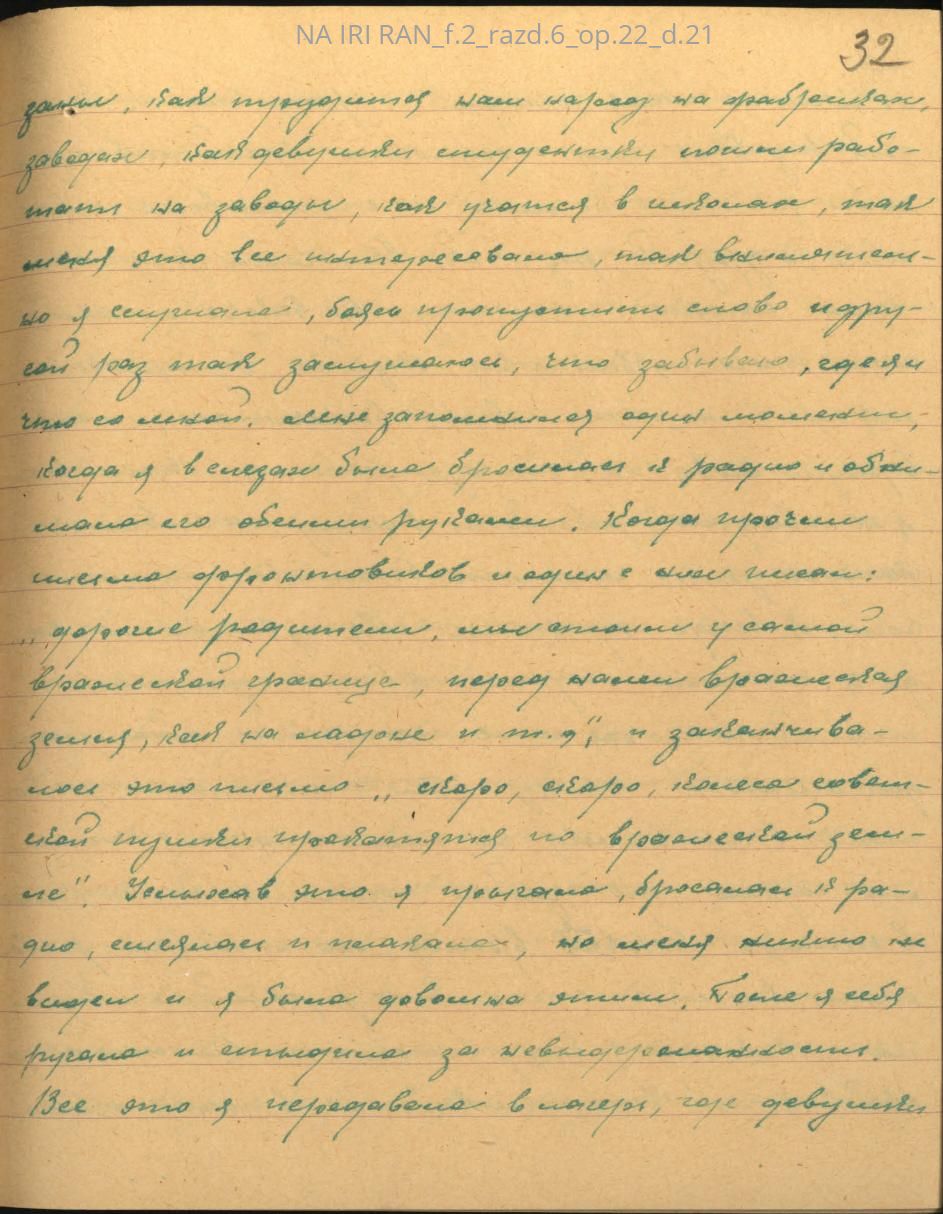 NA IRI RAN_f.2_razd.6_op.22_d.21
32
как трудится наш народ на фабриках,
заводах, как девушки студентки пошли рабо-
тать на заводы, как учатся в школах, так
меня это все интересовало, так внимательн-
но я слушала, боясь пропустить слово и дру-
гой раз так заслушаюсь, что забываю, где я и
что со мной. Мне запомнился один момент,
когда я в слезах была бросилась к радио и обни-
мала его обеими руками. Когда прочли
письма фронтовиков и один с них писал:
„дорогие родители, мы стоим у самой
вражеской границе, перед нами вражеская
земля, как на ладоне и т.д", и заканчива-
лось это письмо „скоро, скоро, колеса совет-
ской пушки прокатятся по вражеской зем-
ле". Услыхав это я прыгала, бросалась к ра-
дио, смеялась и плакала, но меня никто не
видел и я была довольна этим. После я себя
ругала и стыдила за невыдержанность.
Все это я передавала в лагерь, где девушки